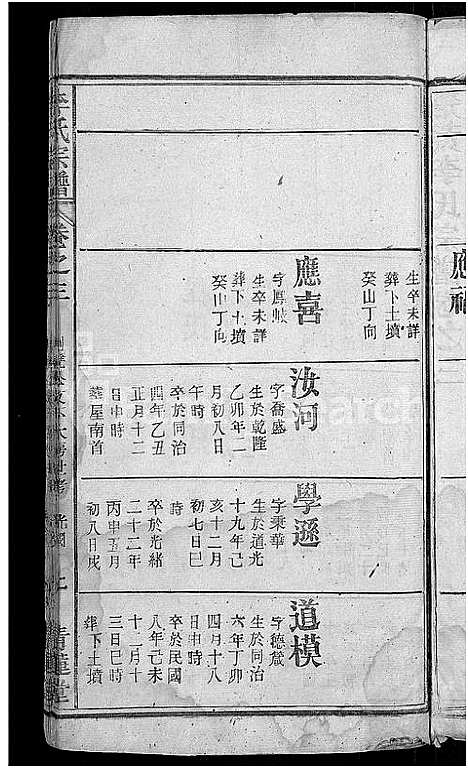 應福
生卒未詳
葬卞土墳
癸山丁向
應喜
字鳳岐
生卒未詳
葬卞土墳
癸山丁向
汝河
字喬盛
生於乾隆
乙卯年二
月初八日
午時
卒於同治
四年乙丑
正月十二
日申時
葬屋南首
學遜
字秉華
生於道光
十九年己
亥十二月
初七日巳
時
卒於光緒
二十二年
丙申五月
初八日戌
道模
字德箴
生於同治
六年丁卯
四月十八
日申時
卒於民國
八年己未
十二月十
三日巳時
葬卞土墳
李氏宗譜
卷之三
青蓮堂